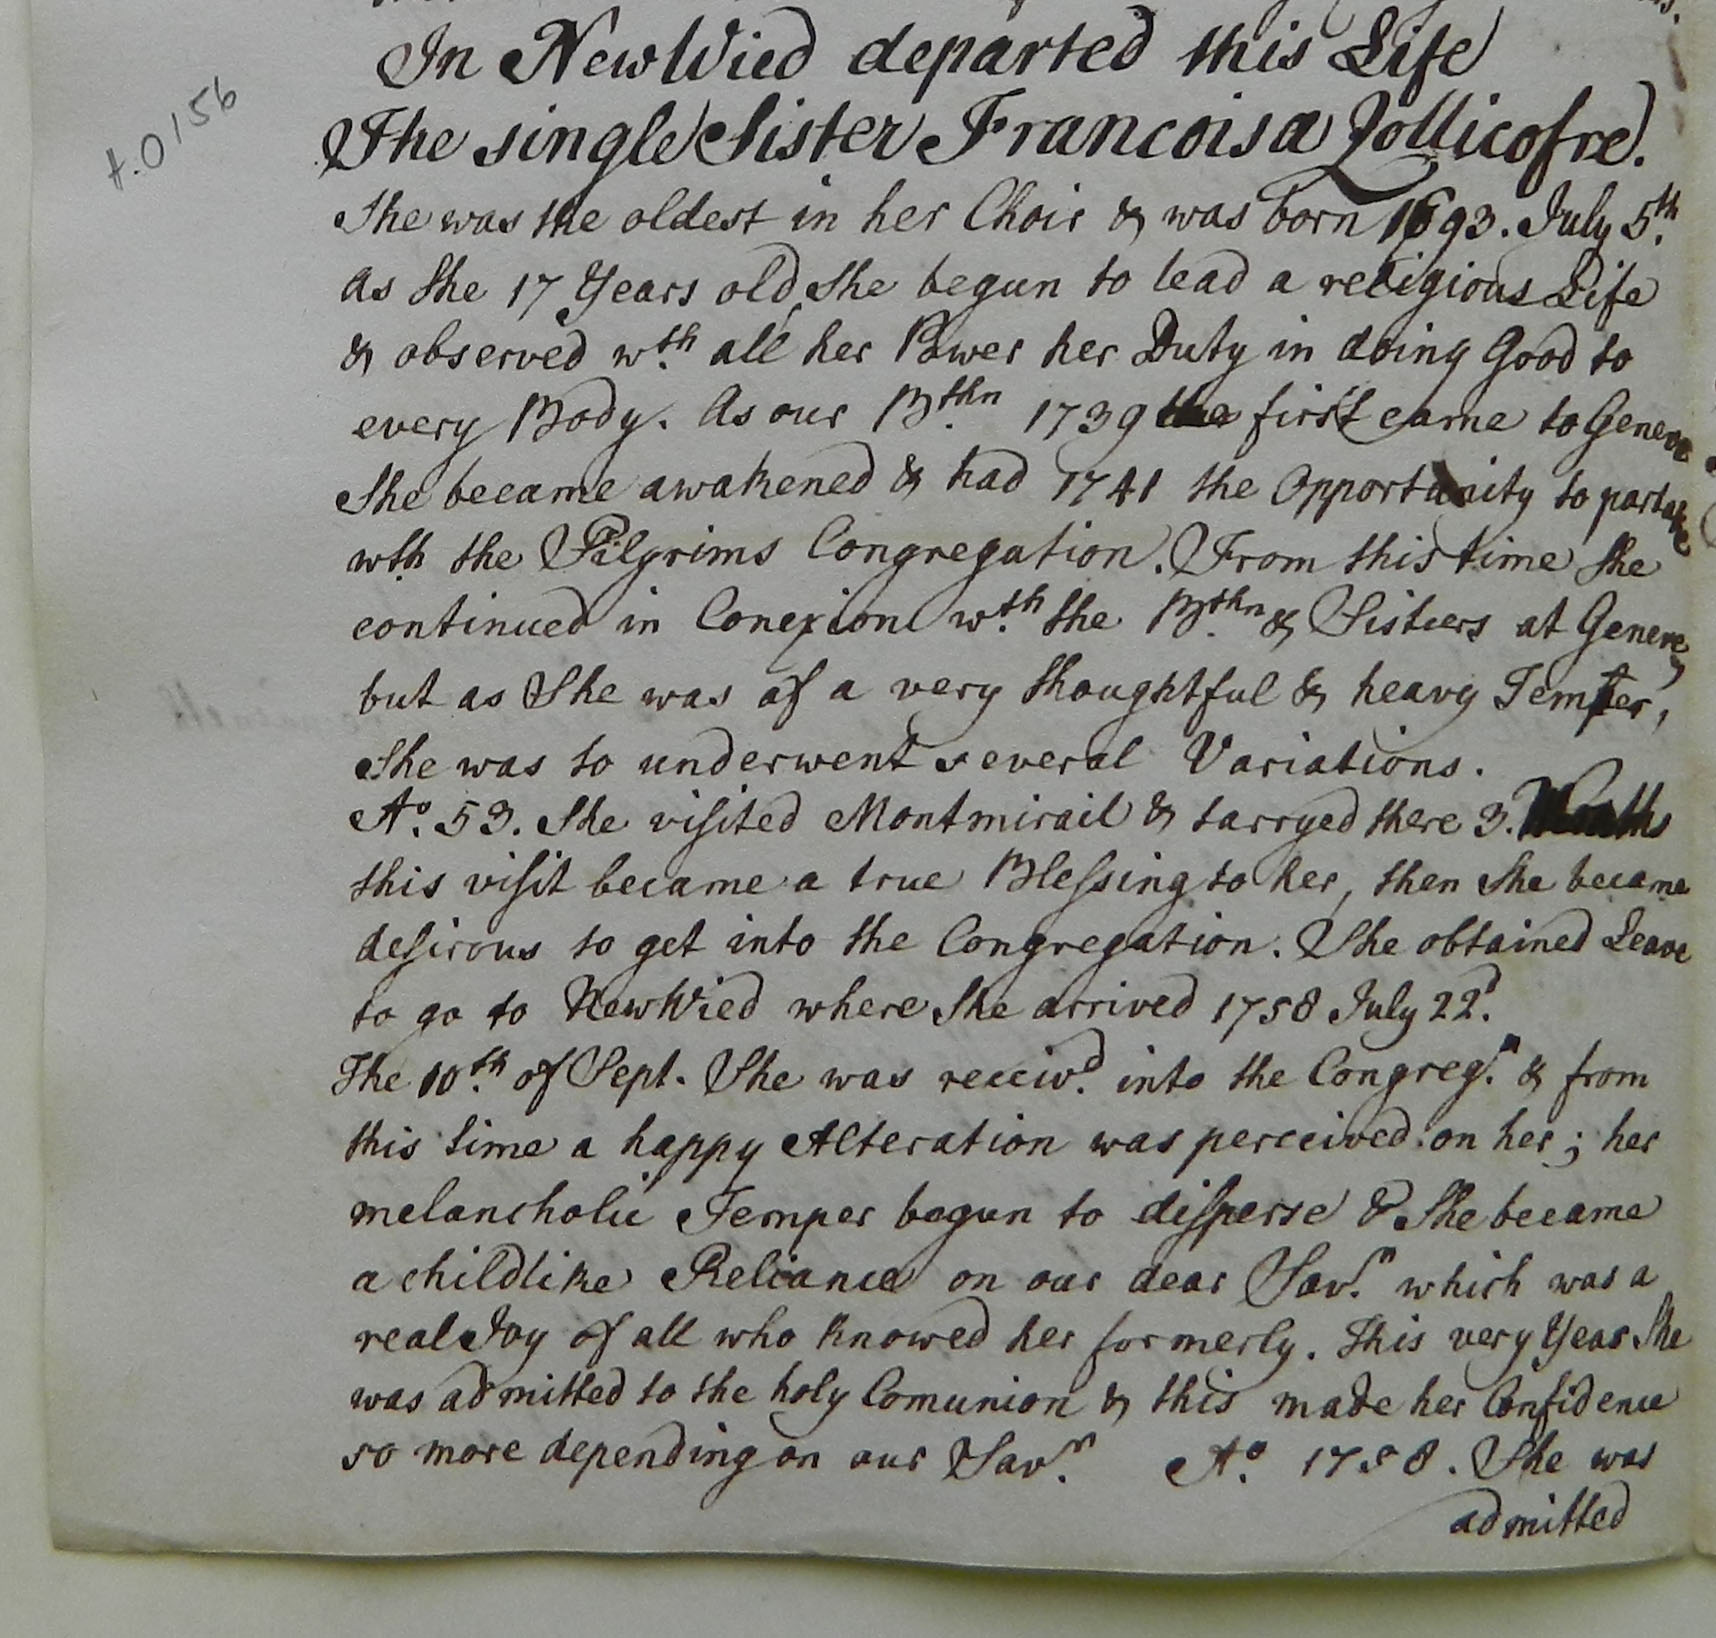 In NewWied departed this Life
The single Sister Francoisa Zollicofre.
H.0156
She was the oldest in her Choir & was born 1693. July 5th.
As She 17 Years old, She begun to lead a religious Life
& observed wth. all her Power her Duty in doing Good to
every Body. As our Bthn. 1739 first came to Geneve
She became awakened & had 1741 the Opportunity to partake
wth the Pilgrims Congregation. From this time She
continued in Conexion wth. the Bthn. & Sisters at Geneve,
but as She was of a very thoughtful & heavy Temper,
She was to underwent several Variations.
Ao. 53. She visited Montmirail & tarryed there 3. Months
this visit became a true Blessing to her, then She became
desirous to get into the Congregation. She obtained Leave
to go to NewWied where She arrived 1758 July 22d.
The 10th. of Sept. She was receiv'd. into the Congregn. & from
this time a happy Alteration was perceived on her; her
melancholic Temper begun to disperse & She became
a childlike Reliance on our dear Savr. which was a
real Joy of all who knowed her formerly. This very Year She
was admitted to the holy Comunion & this made her Confidence
so more depending on our Savr. Ao. 1758. She was
admitted